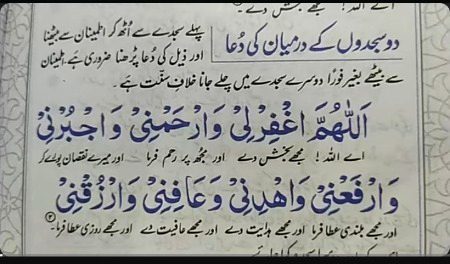 اے اللہ! مجھے بخش دے۔
دو سجدوں کے درمیان کی دُعا
پہلے سجدے سے اُٹھ کر اطمینان سے بیٹھنا
اور ذیل کی دُعا پڑھنا ضروری ہے۔ اطمینان
سے بیٹھے بغیر فورًا دوسرے سجدے میں چلے جانا خلافِ سنّت ہے۔
اَللّٰهُمَّ اغْفِرْ لِیْ وَارْحَمْنِیْ وَاجْبُرْنِیْ
اے اللہ! مجھے بخش دے اور مجھ پر رحم فرما اور میرے نقصان پورے کر
وَارْفَعْنِیْ وَاهْدِنِیْ وَعَافِنِیْ وَارْزُقْنِیْ
اور مجھے بلندی عطا فرما اور مجھے ہدایت دے اور مجھے عافیت دے اور مجھے روزی عطا فرما۔ (۲)